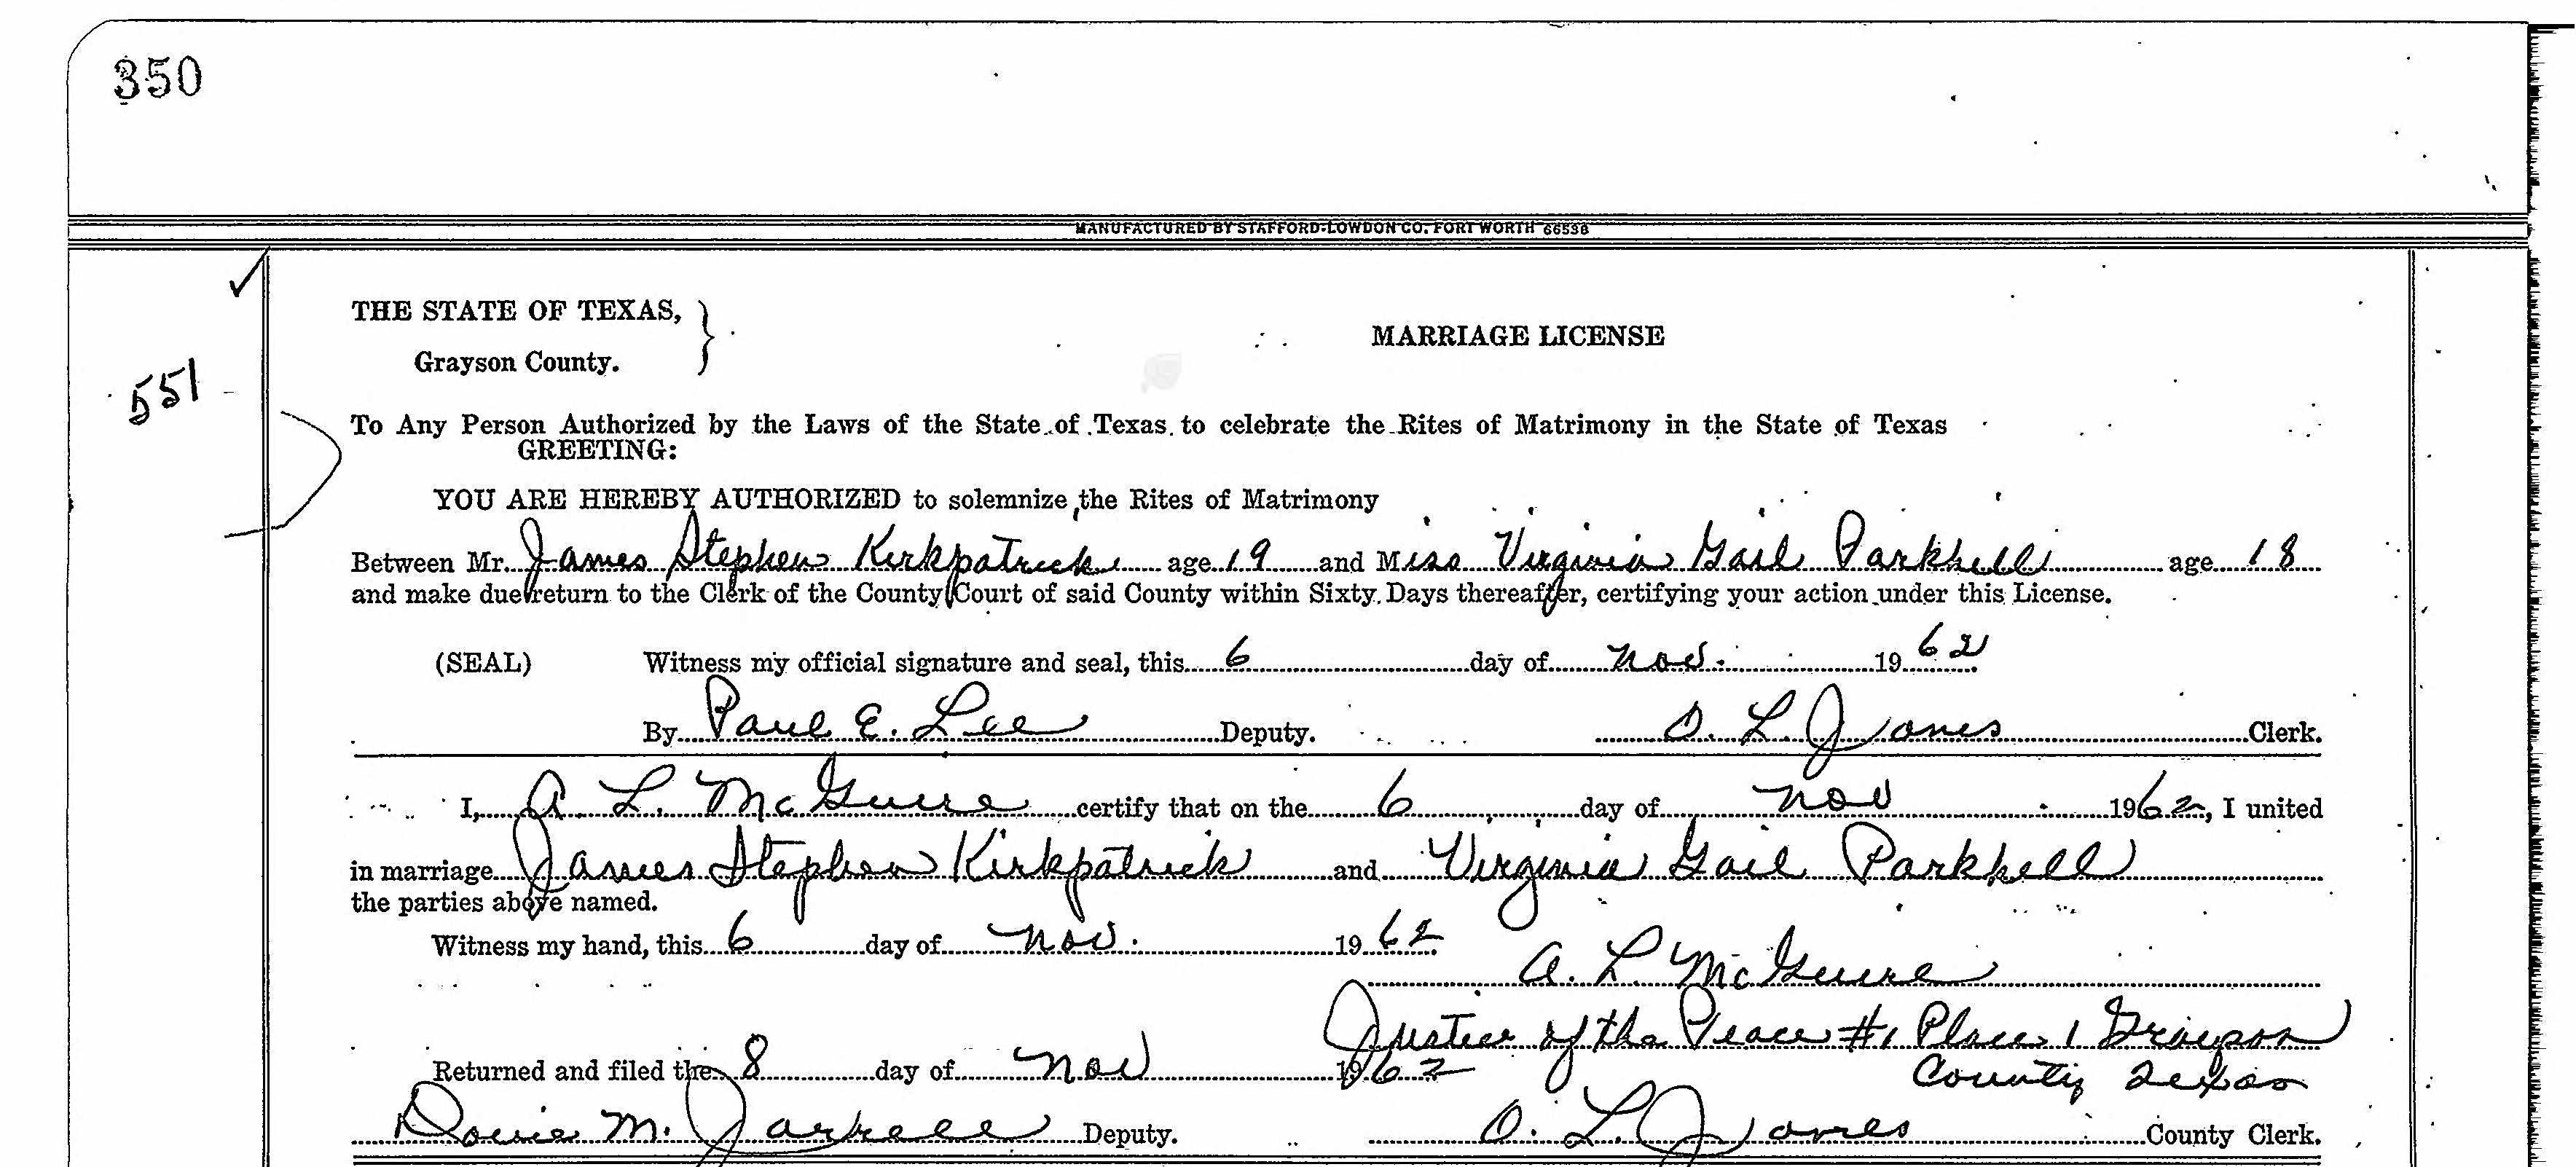 350
MANUFACTURED BY STAFFORD-LOWDON CO. FORT WORTH 66538
THE STATE OF TEXAS,
Grayson County.
MARRIAGE LICENSE
551
To Any Person Authorized by the Laws of the State of Texas to celebrate the Rites of Matrimony in the State of Texas
GREETING:
YOU ARE HEREBY AUTHORIZED to solemnize the Rites of Matrimony
Between Mr. James Stephen Kirkpatrick age 19 and Miss Virginia Gail Parkhill age 18
and make due return to the Clerk of the County Court of said County within Sixty Days thereafter, certifying your action under this License.
(SEAL) Witness my official signature and seal, this 6 day of Nov. 19 62
By Paul E. Lee Deputy. O. L. Jones Clerk.
I, A. L. McGuire certify that on the 6 day of Nov 1962, I united
in marriage James Stephen Kirkpatrick and Virginia Gail Parkhill
the parties above named.
Witness my hand, this 6 day of Nov. 19 62
A. L. McGuire
Justice of the Peace #1 Place 1 Grayson
County Texas
Returned and filed the 8 day of Nov 1962
M. Deputy. O. L. Jones County Clerk.